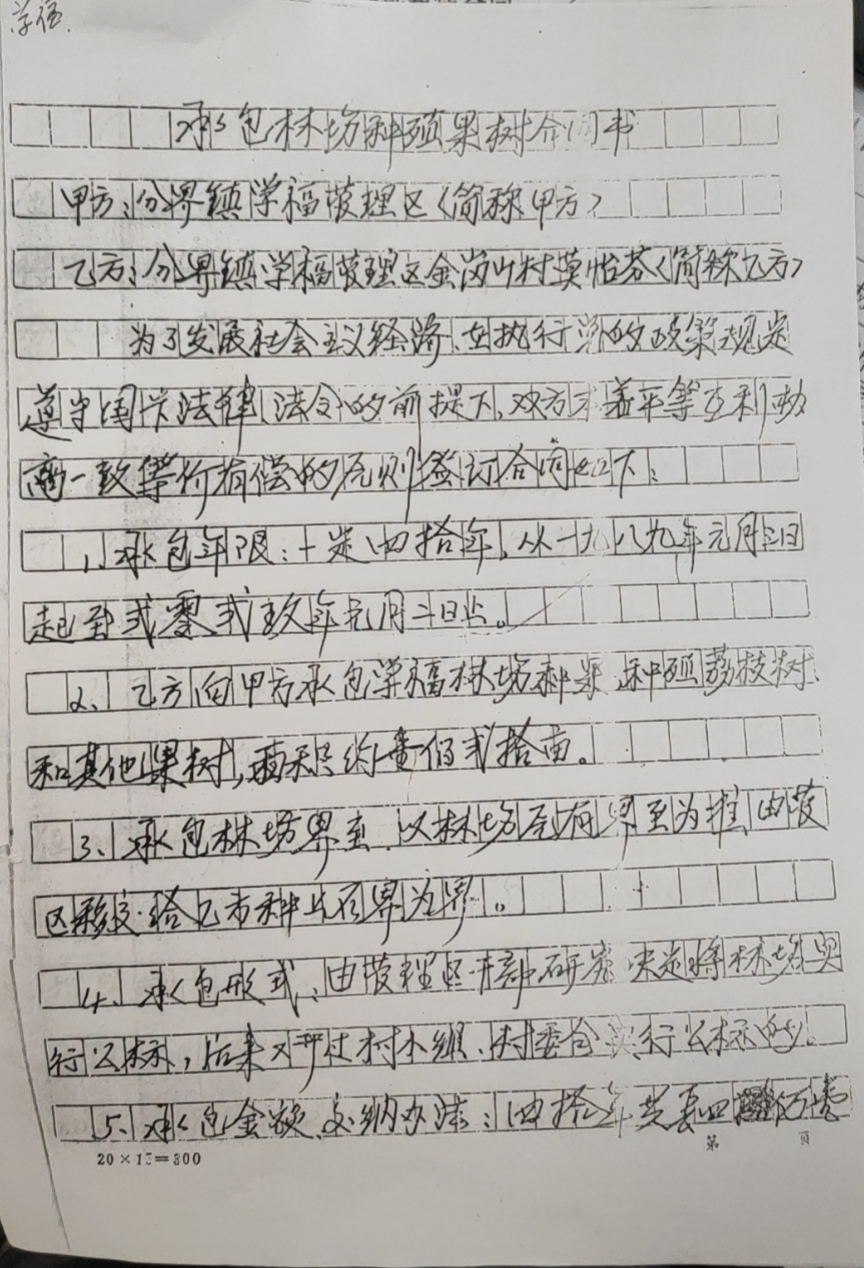 学福
承包林场种硕果树合同书
甲方:分界镇学福管理区(简称甲方)
乙方:分界镇学福管理区金岗叶村莫怡芬(简称乙方)
为了发展社会主义经济.在执行党的政策规定
遵守国家法律、法令的前提下,双方本着平等互利协
商一致等价有偿的原则签订合同如下:
1、承包年限:一定四拾年,从一九八九年元月三日
起至弍零弍玖年元月 日止。
2、乙方向甲方承包学福林场种果、种硕荔枝树、
和其他果树,面积约壹佰弍拾亩。
3、承包林场界至.以林场原有界至为准,由管
区移交给乙方种 界为界。
4、承包形式:由管理区干部研究决定将林场实
行公标,后来又开过村小组、村委会实行公标的。
5、承包金额交纳办法:四拾年共要四 佰壹
20×15=300
第 页